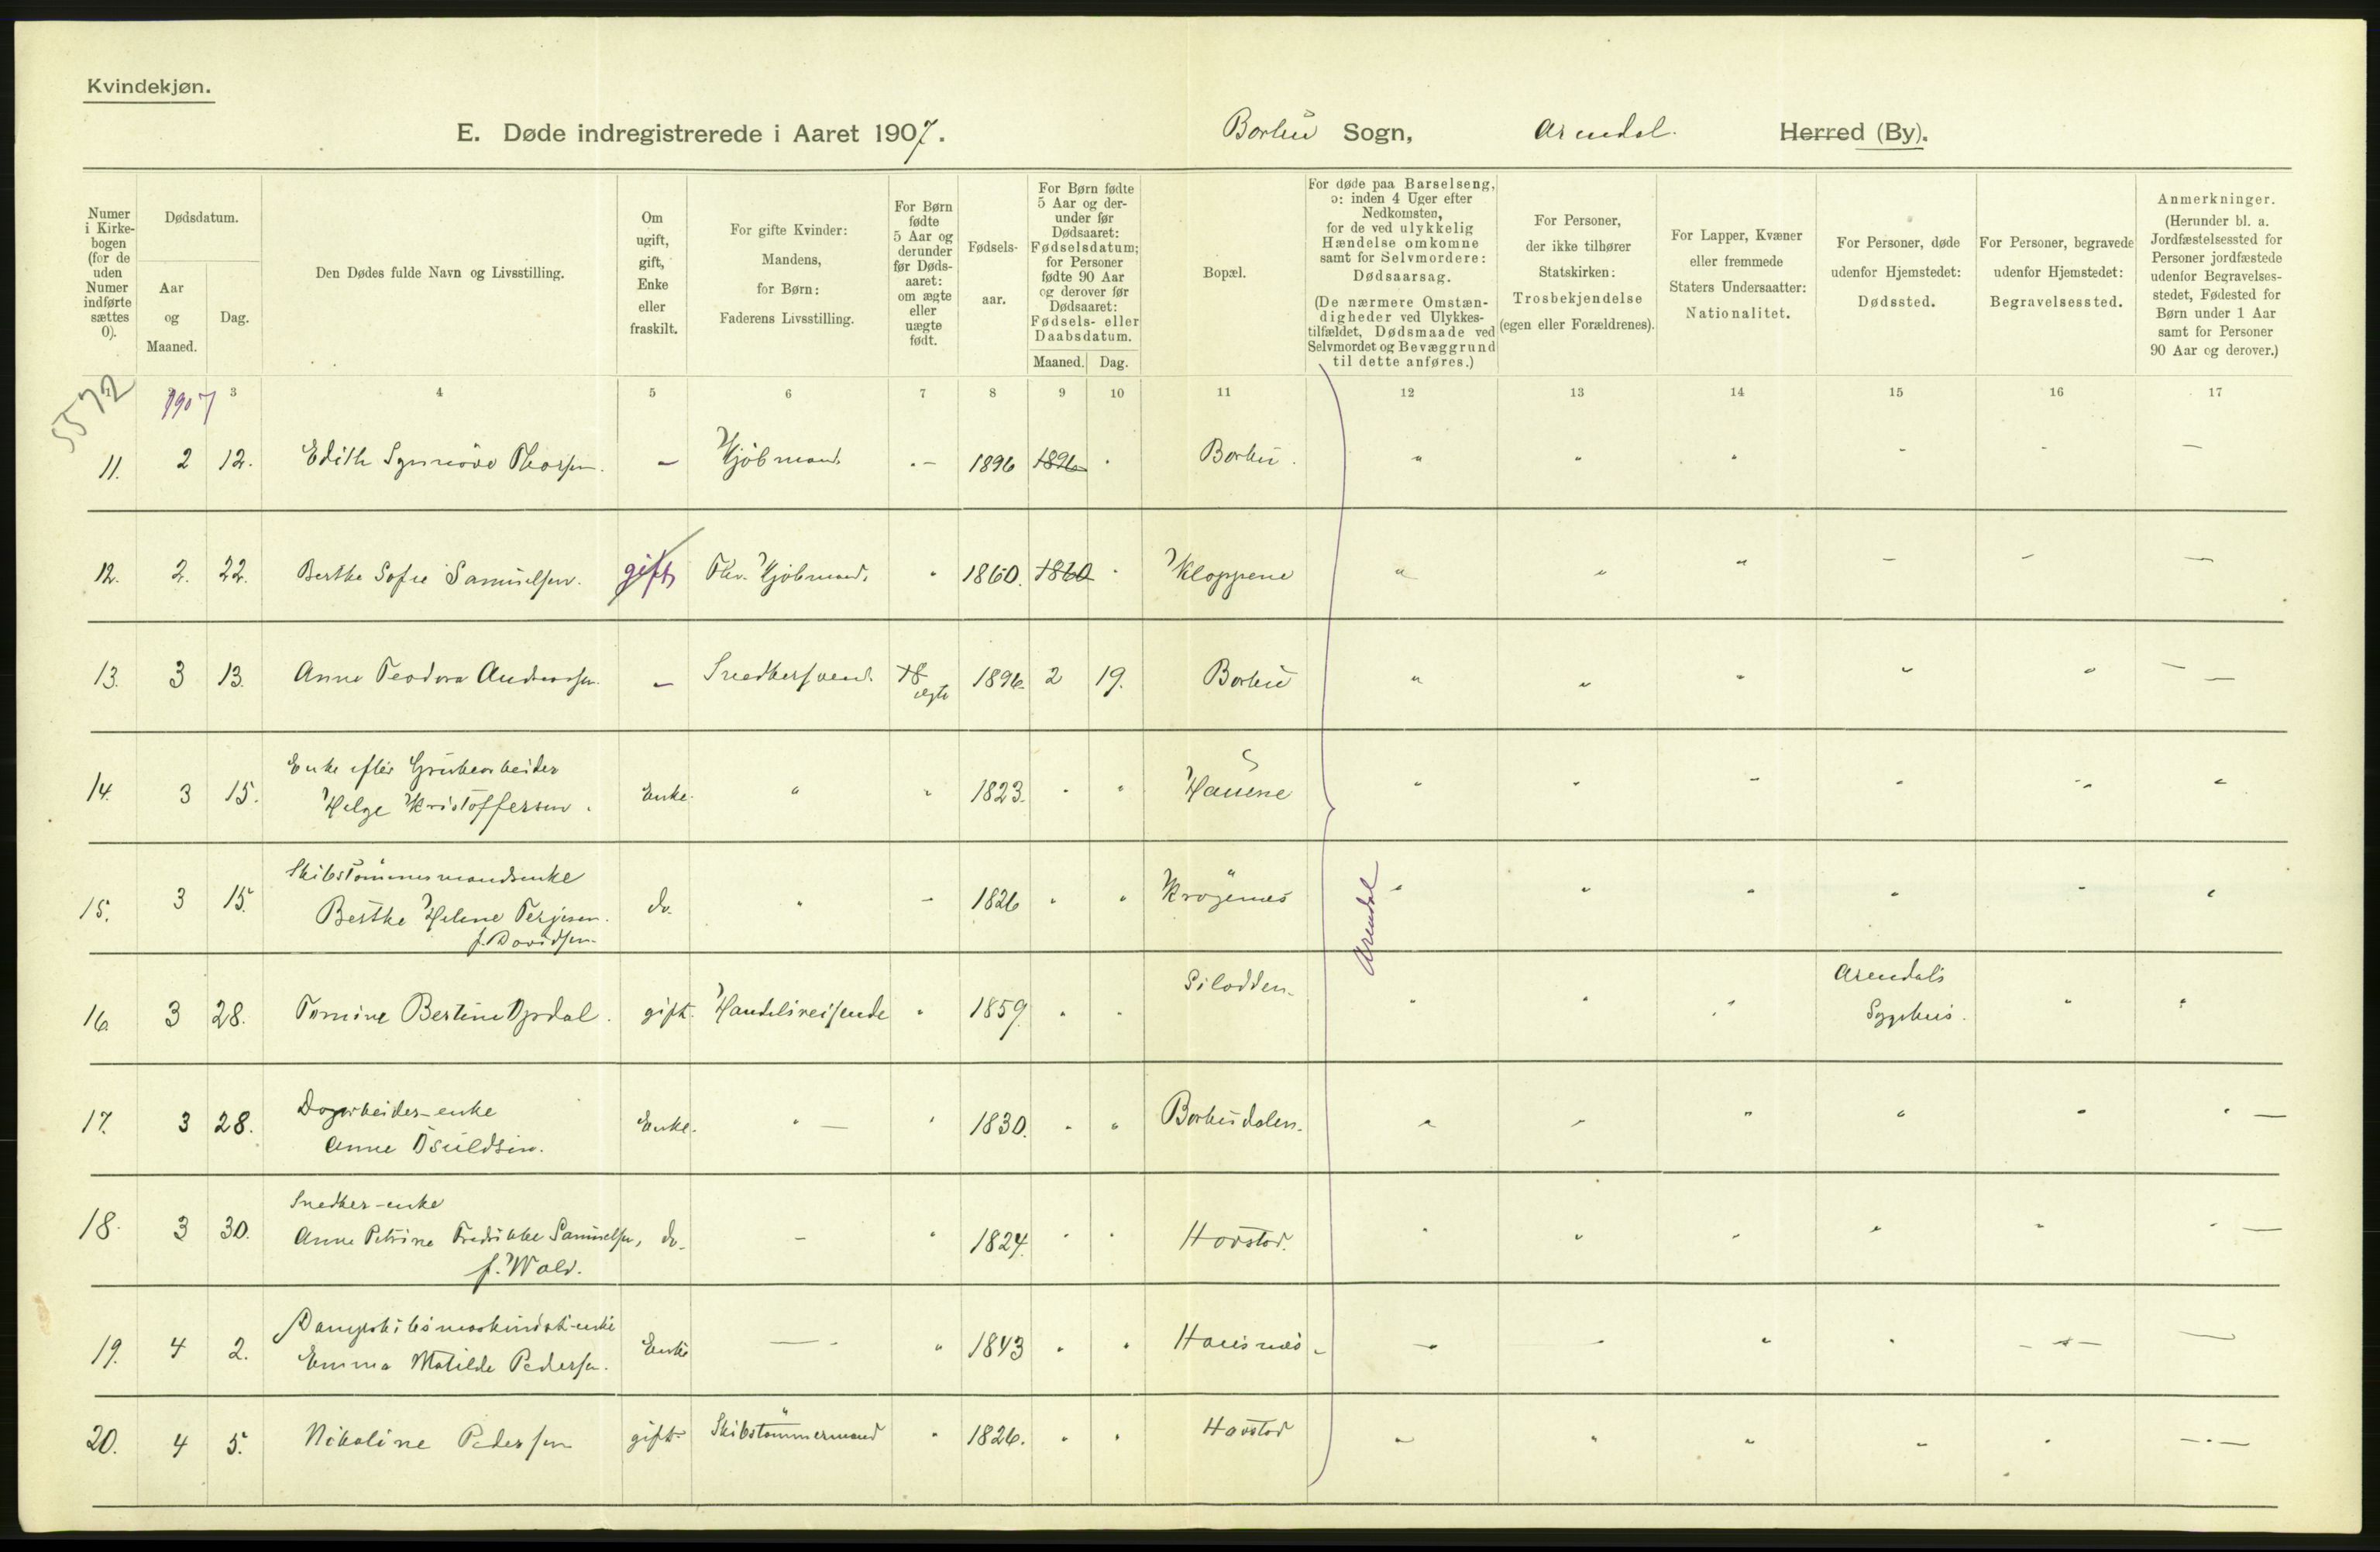 Kvindekjøn.
E. Døde indregistrerede i Aaret 1907. Barbu Sogn, Arendal. Herred (By).
Numer i Kirkebogen (for de uden Numer indførte sættes 0).
Dødsdatum.
Aar og Maaned.
Dag.
Den Dødes fulde Navn og Livsstilling.
Om ugift, gift, Enke eller fraskilt.
For gifte Kvinder: Mandens, for Børn: Faderens Livsstilling.
For Børn fødte 5 Aar og derunder før Dødsaaret: om ægte eller uægte født.
Fødselsaar.
For Børn fødte 5 Aar og derunder før Dødsaaret: Fødselsdatum; for Personer fødte 90 Aar og derover før Dødsaaret: Fødsels- eller Daabsdatum.
Maaned. Dag.
Bopæl.
For døde paa Barselseng, ɔ: inden 4 Uger efter Nedkomsten, for de ved ulykkelig Hændelse omkomne samt for Selvmordere: Dødsaarsag.
(De nærmere Omstændigheder ved Ulykkestilfældet, Dødsmaade ved Selvmordet og Bevæggrund til dette anføres.)
For Personer, der ikke tilhører Statskirken: Trosbekjendelse (egen eller Forældrenes).
For Lapper, Kvæner eller fremmede Staters Undersaatter: Nationalitet.
For Personer, døde udenfor Hjemstedet: Dødssted.
For Personer, begravede udenfor Hjemstedet: Begravelsessted.
Anmerkninger.
(Herunder bl. a. Jordfæstelsessted for Personer jordfæstede udenfor Begravelsesstedet, Fødested for Børn under 1 Aar samt for Personer 90 Aar og derover.)
1 3 4 5 6 7 8 9 10 11 12 13 14 15 16 17
5572
1907
11. 2 12. Edith Synnöve Thorsen. - Kjöbmand. - 1896 1896 Barbu. " " " - - -
12. 2. 22. Berthe Sofie Samuelsen. gift Fhv. Kjöbmand. " 1860. 1860 Kloppene " " " - - -
13. 3 13. Anna Teodora Andreassen. - Snedkersvend. 18 ægte 1896. 2 19. Barbu " " " " " -
14. 3 15. Enke efter Grubearbeider
Helge Kristoffersen. Enke. " " 1823. " " Hauene " " " " " "
15. 3 15. Skibstömmermandsenke
Berthe Helene Terjesen. do. " - 1826 " " Krøgenes " " " " " "
f. Davidsen.
Arendal
16. 3 28. Tomine Bertine Opdal. gift. Handelsreisende " 1859. " " Silodden. " " " Arendals
Sygehus. " "
17. 3 28. Dagarbeider-enke
Anne Osuldsen. Enke. " - " 1830. " " Barbudalen. " " " " " " -
18. 3 30. Snedker-enke
Anne Petrine Fredrikke Samuelsen, do. - " 1824. " " Havstad. " " " " " " -
f. Wold.
19. 4 2. Dampskibsmaskinist-enke
Emma Matilde Pedersen. Enke - " 1843 " " Hausnes - " " " " - " - -
20. 4 5. Nikoline Pedersen gift. Skibstömmermand " 1826. " " Havstad " " " " " - " -